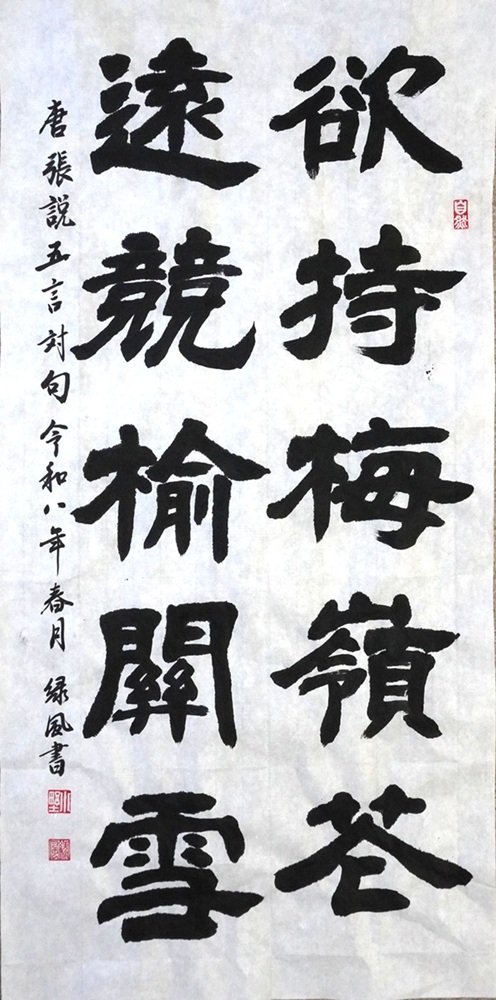 欲持梅嶺花
遠競榆關雪
唐張説五言対句 令和八年春月 緑風書
自然